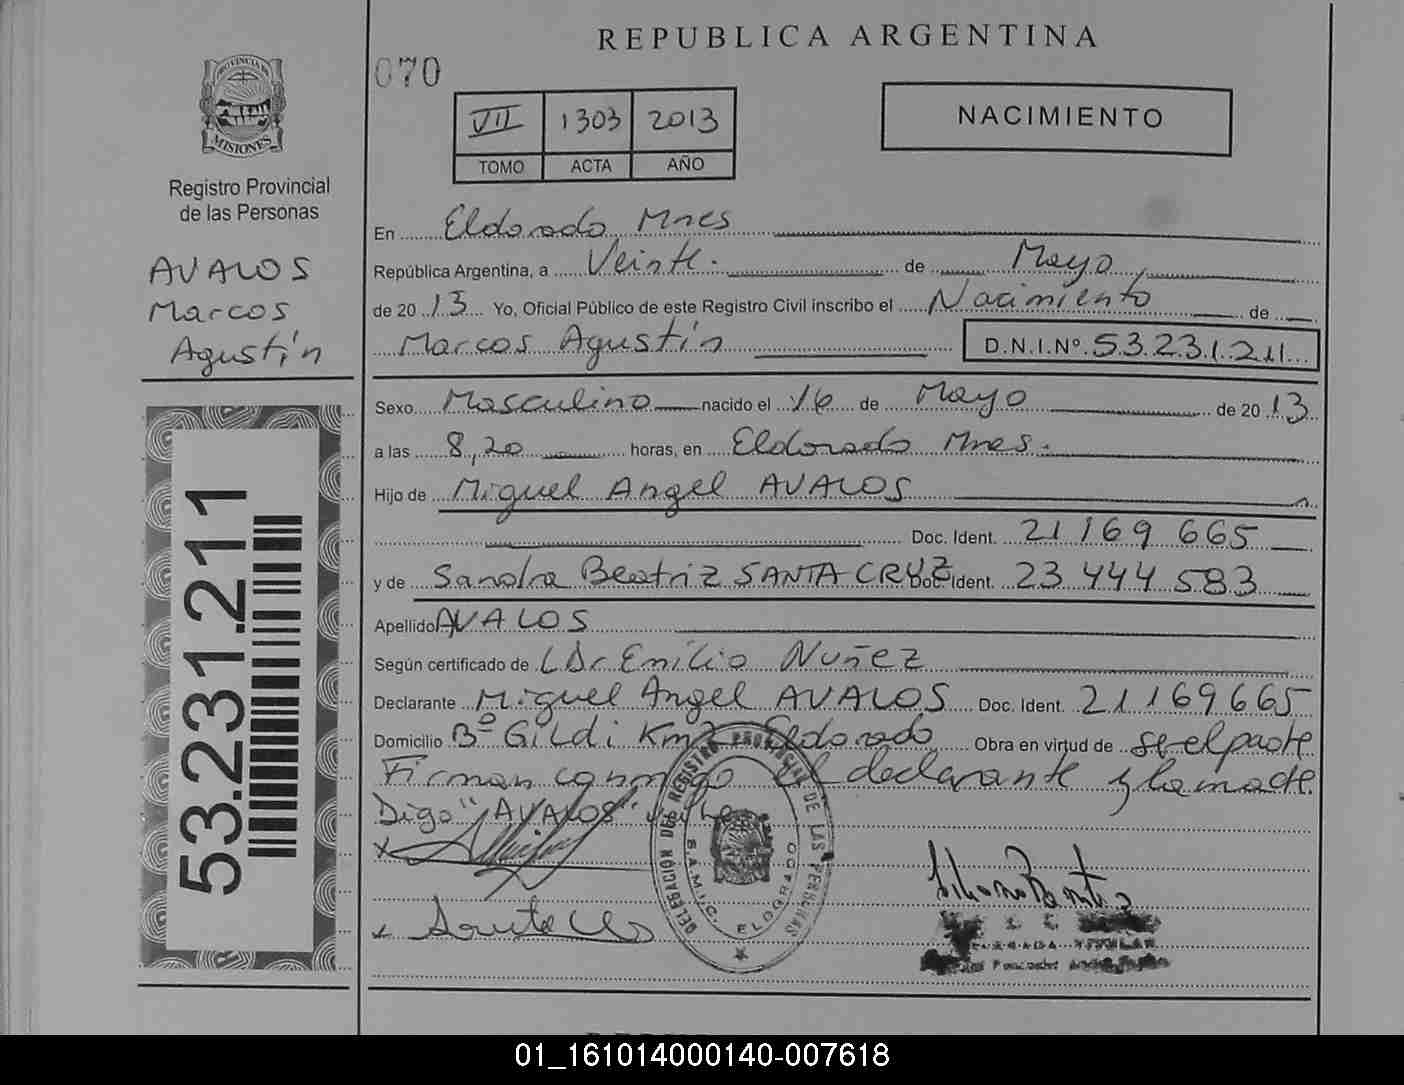 REPUBLICA ARGENTINA
070
PROVINCIA DE
MISIONES
Registro Provincial
de las Personas
AVALOS
Marcos
Agustín
53.231.211
VII 1303 2013
TOMO ACTA AÑO
NACIMIENTO
En Eldorado Mnes
República Argentina, a Veinte. de Mayo
de 2013 Yo, Oficial Público de este Registro Civil inscribo el Nacimiento de
Marcos Agustín D.N.I.Nº 53.231.211
Sexo Masculino nacido el 16 de Mayo de 2013
a las 8,20 horas, en Eldorado Mnes.
Hijo de Miguel Angel AVALOS
Doc. Ident. 21 169 665
y de Sandra Beatriz SANTA CRUZ Doc. Ident. 23 444 583
Apellido AVALOS
Según certificado de Dr Emilio Nuñez
Declarante Miguel Angel AVALOS Doc. Ident. 21169665
Domicilio Bº Gildi Km2 Eldorado Obra en virtud de ser el padre
Firman conmigo el declarante y la madre.
Digo "AVALOS" vale
DELEGACION DEL REGISTRO PROVINCIAL DE LAS PERSONAS
S.A.M.I.C. ELDORADO
01_161014000140-007618